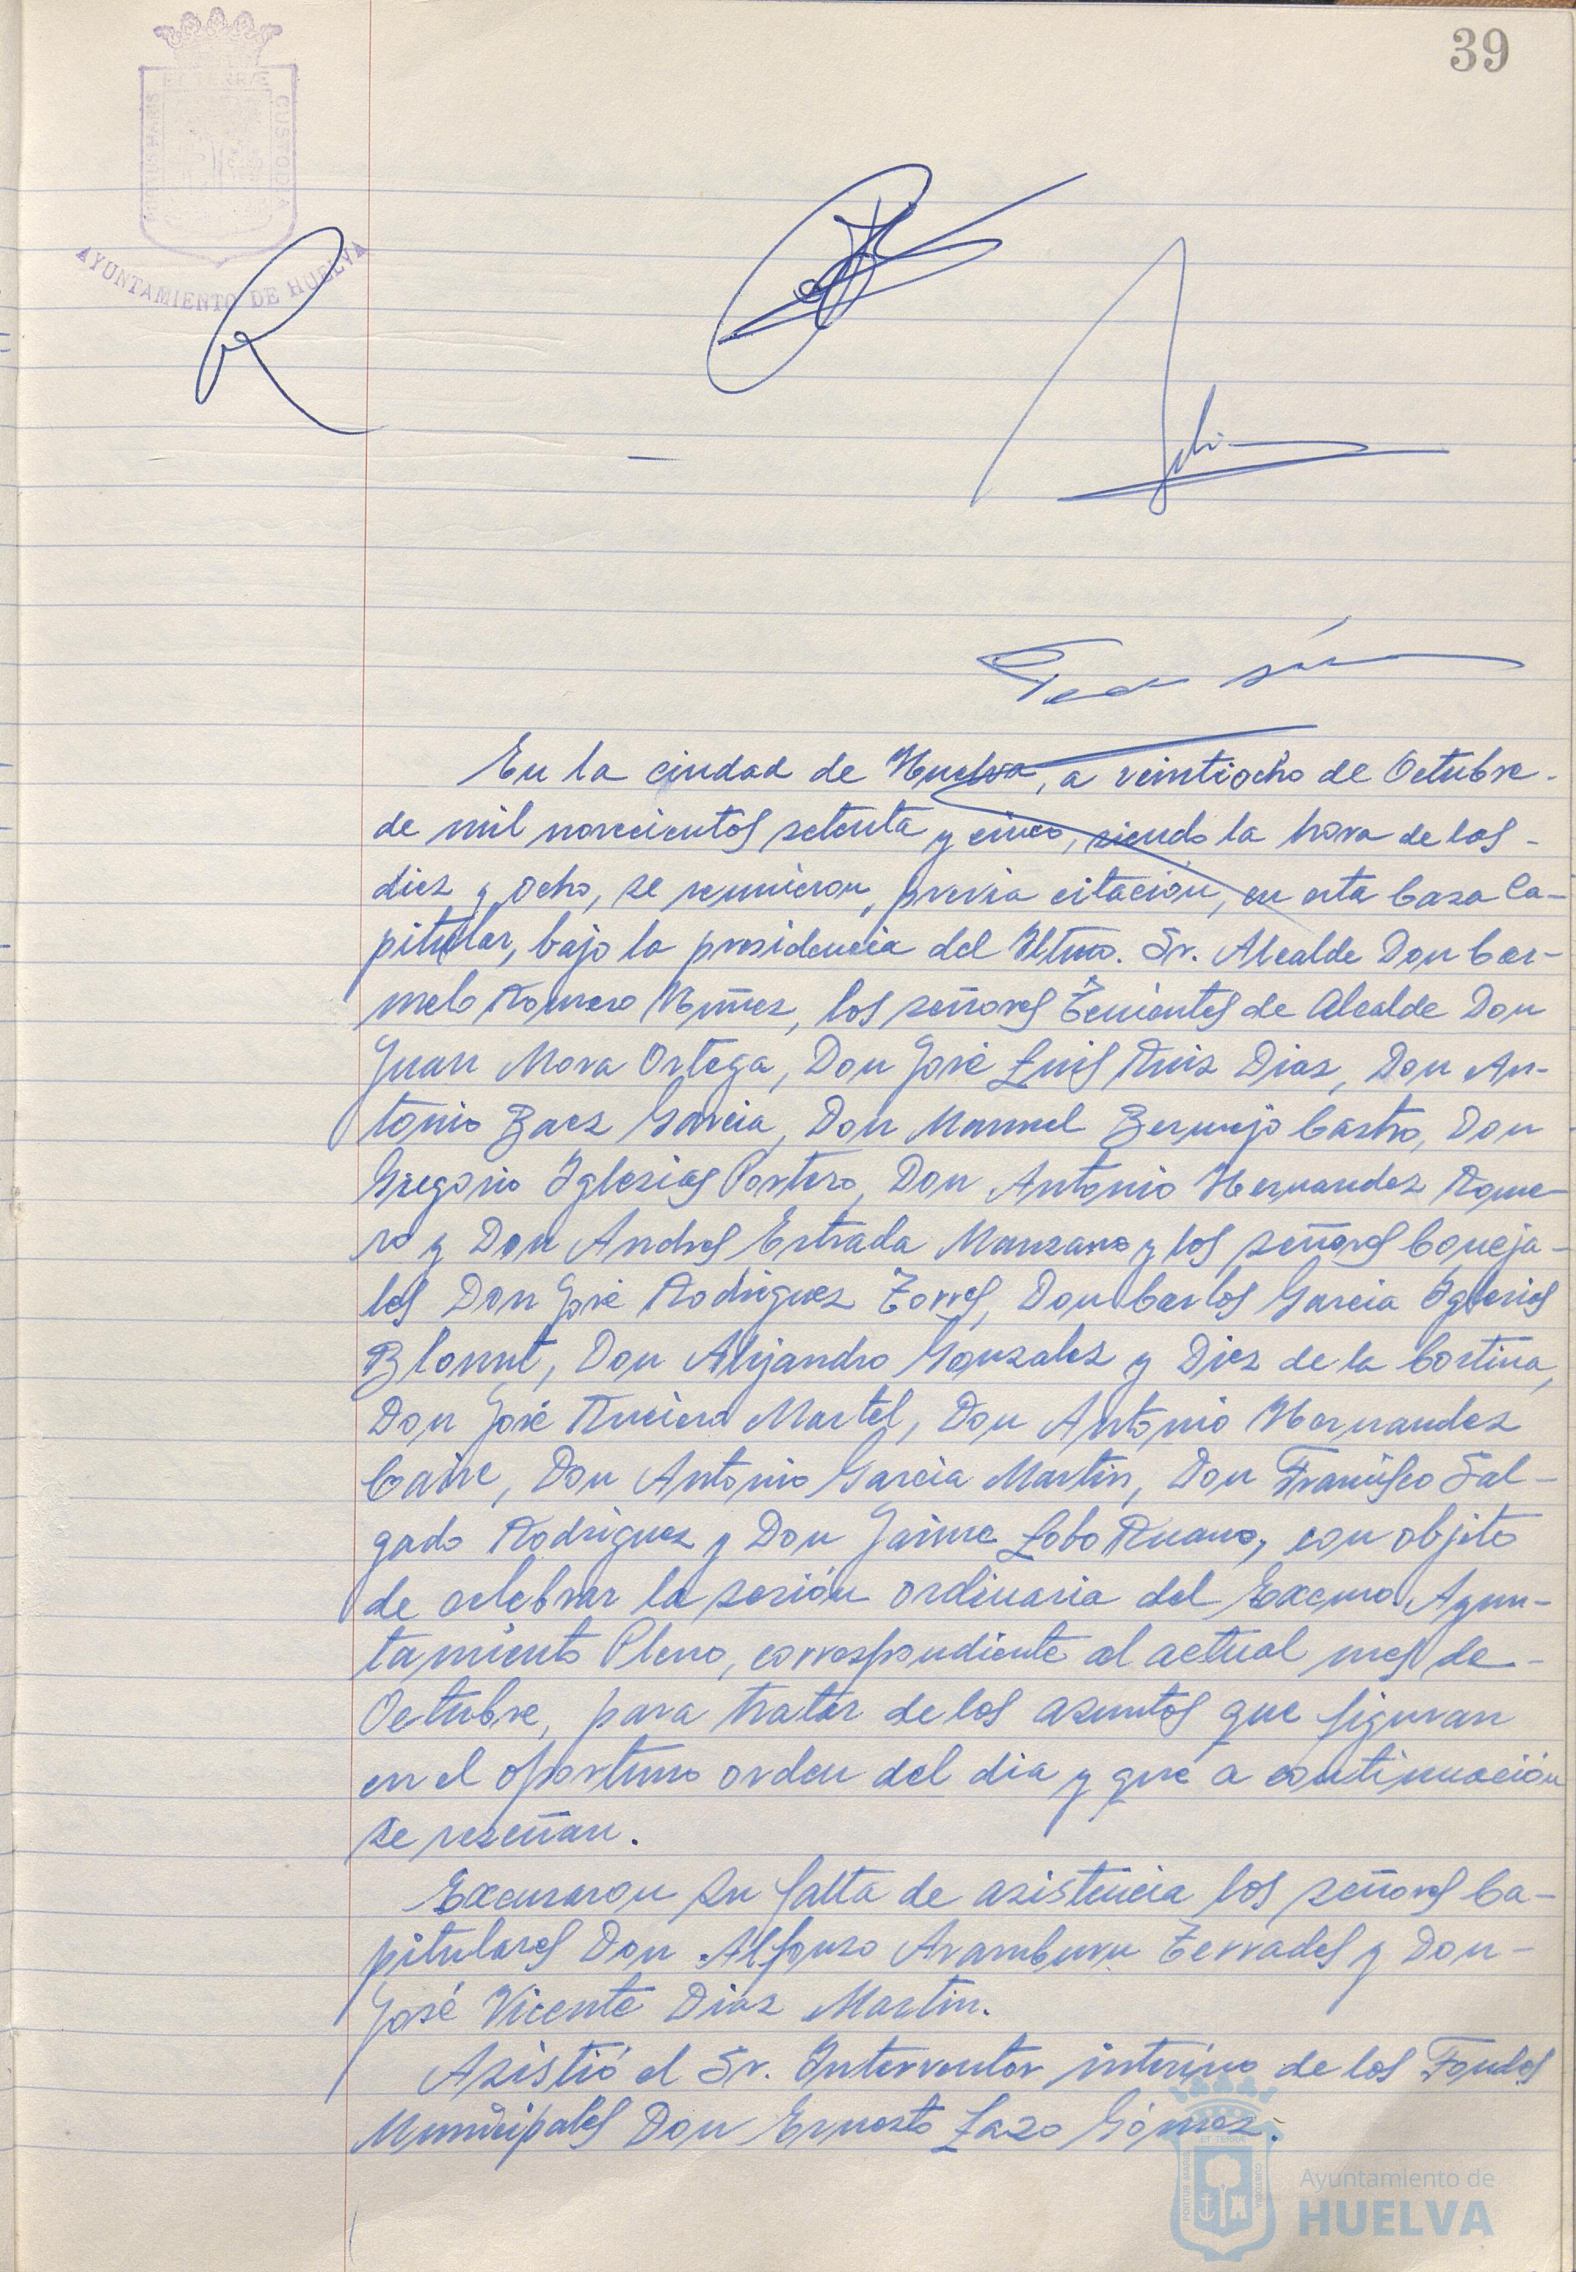 39
ET TERRÆ
PORTUS MARIS
CUSTODIA
AYUNTAMIENTO DE HUELVA
En la ciudad de Huelva, a veintiocho de Octubre-
de mil novecientos setenta y cinco, siendo la hora de las-
diez y ocho, se reunieron, previa citación, en esta Casa Ca-
pitular, bajo la presidencia del Iltmo. Sr. Alcalde Don Car-
melo Romero Núñez, los señores Tenientes de Alcalde Don
Juan Mora Ortega, Don José Luis Ruiz Diaz, Don An-
tonio Baez Garcia, Don Manuel Bermejo Castro, Don
Gregorio Iglesias Portero, Don Antonio Hernandez Rome-
ro y Don Andres Estrada Manzano y los señores Conceja-
les Don José Rodriguez Torres, Don Carlos Garcia Iglesias
Blount, Don Alejandro Gonzalez y Diez de la Cortina,
Don José Ruciero Martel, Don Antonio Hernandez
Caire, Don Antonio Garcia Martin, Don Francisco Sal-
gado Rodriguez y Don Jaime Lobo Ruano, con objeto
de celebrar la sesión ordinaria del Excmo. Ayun-
tamiento Pleno, correspondiente al actual mes de-
Octubre, para tratar de los asuntos que figuran
en el oportuno orden del dia y que a continuación
se reseñan.
Excusaron su falta de asistencia los señores Ca-
pitulares Don Alfonso Aramburu Terrades y Don-
José Vicente Diaz Martin.
Asistió el Sr. Interventor interino de los Fondos
Municipales Don Ernesto Lazo Gómez.
ET TERRÆ
PORTUS MARIS
CUSTODIA
Ayuntamiento de
HUELVA